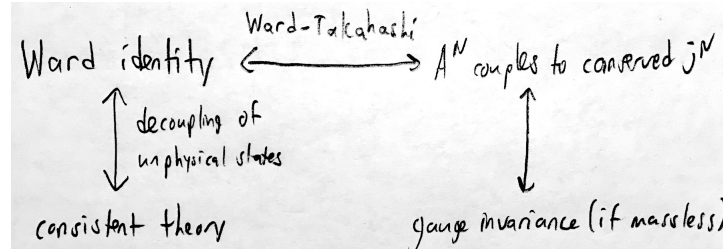 Ward-Takahashi
Ward identity
A^μ couples to conserved j^μ
decoupling of
unphysical states
consistent theory
gauge invariance (if massless)